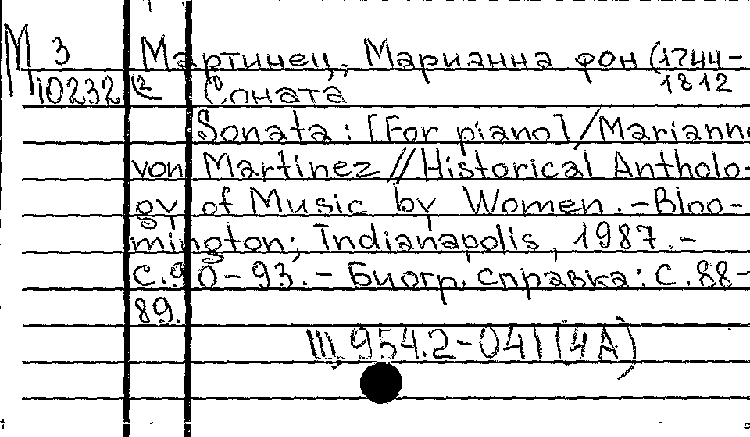 М 3 Мартинец, Марианна фон (1744-
10232 Соната 1812
Sonata : [For piano] / Marianne
von Martinez // Historical Antholo-
gy of Music by Women. - Bloo-
mington; Indianapolis, 1987. -
С. 90-93. - Биогр. справка: С. 88-
89.
Щ 954.2-041(4А)